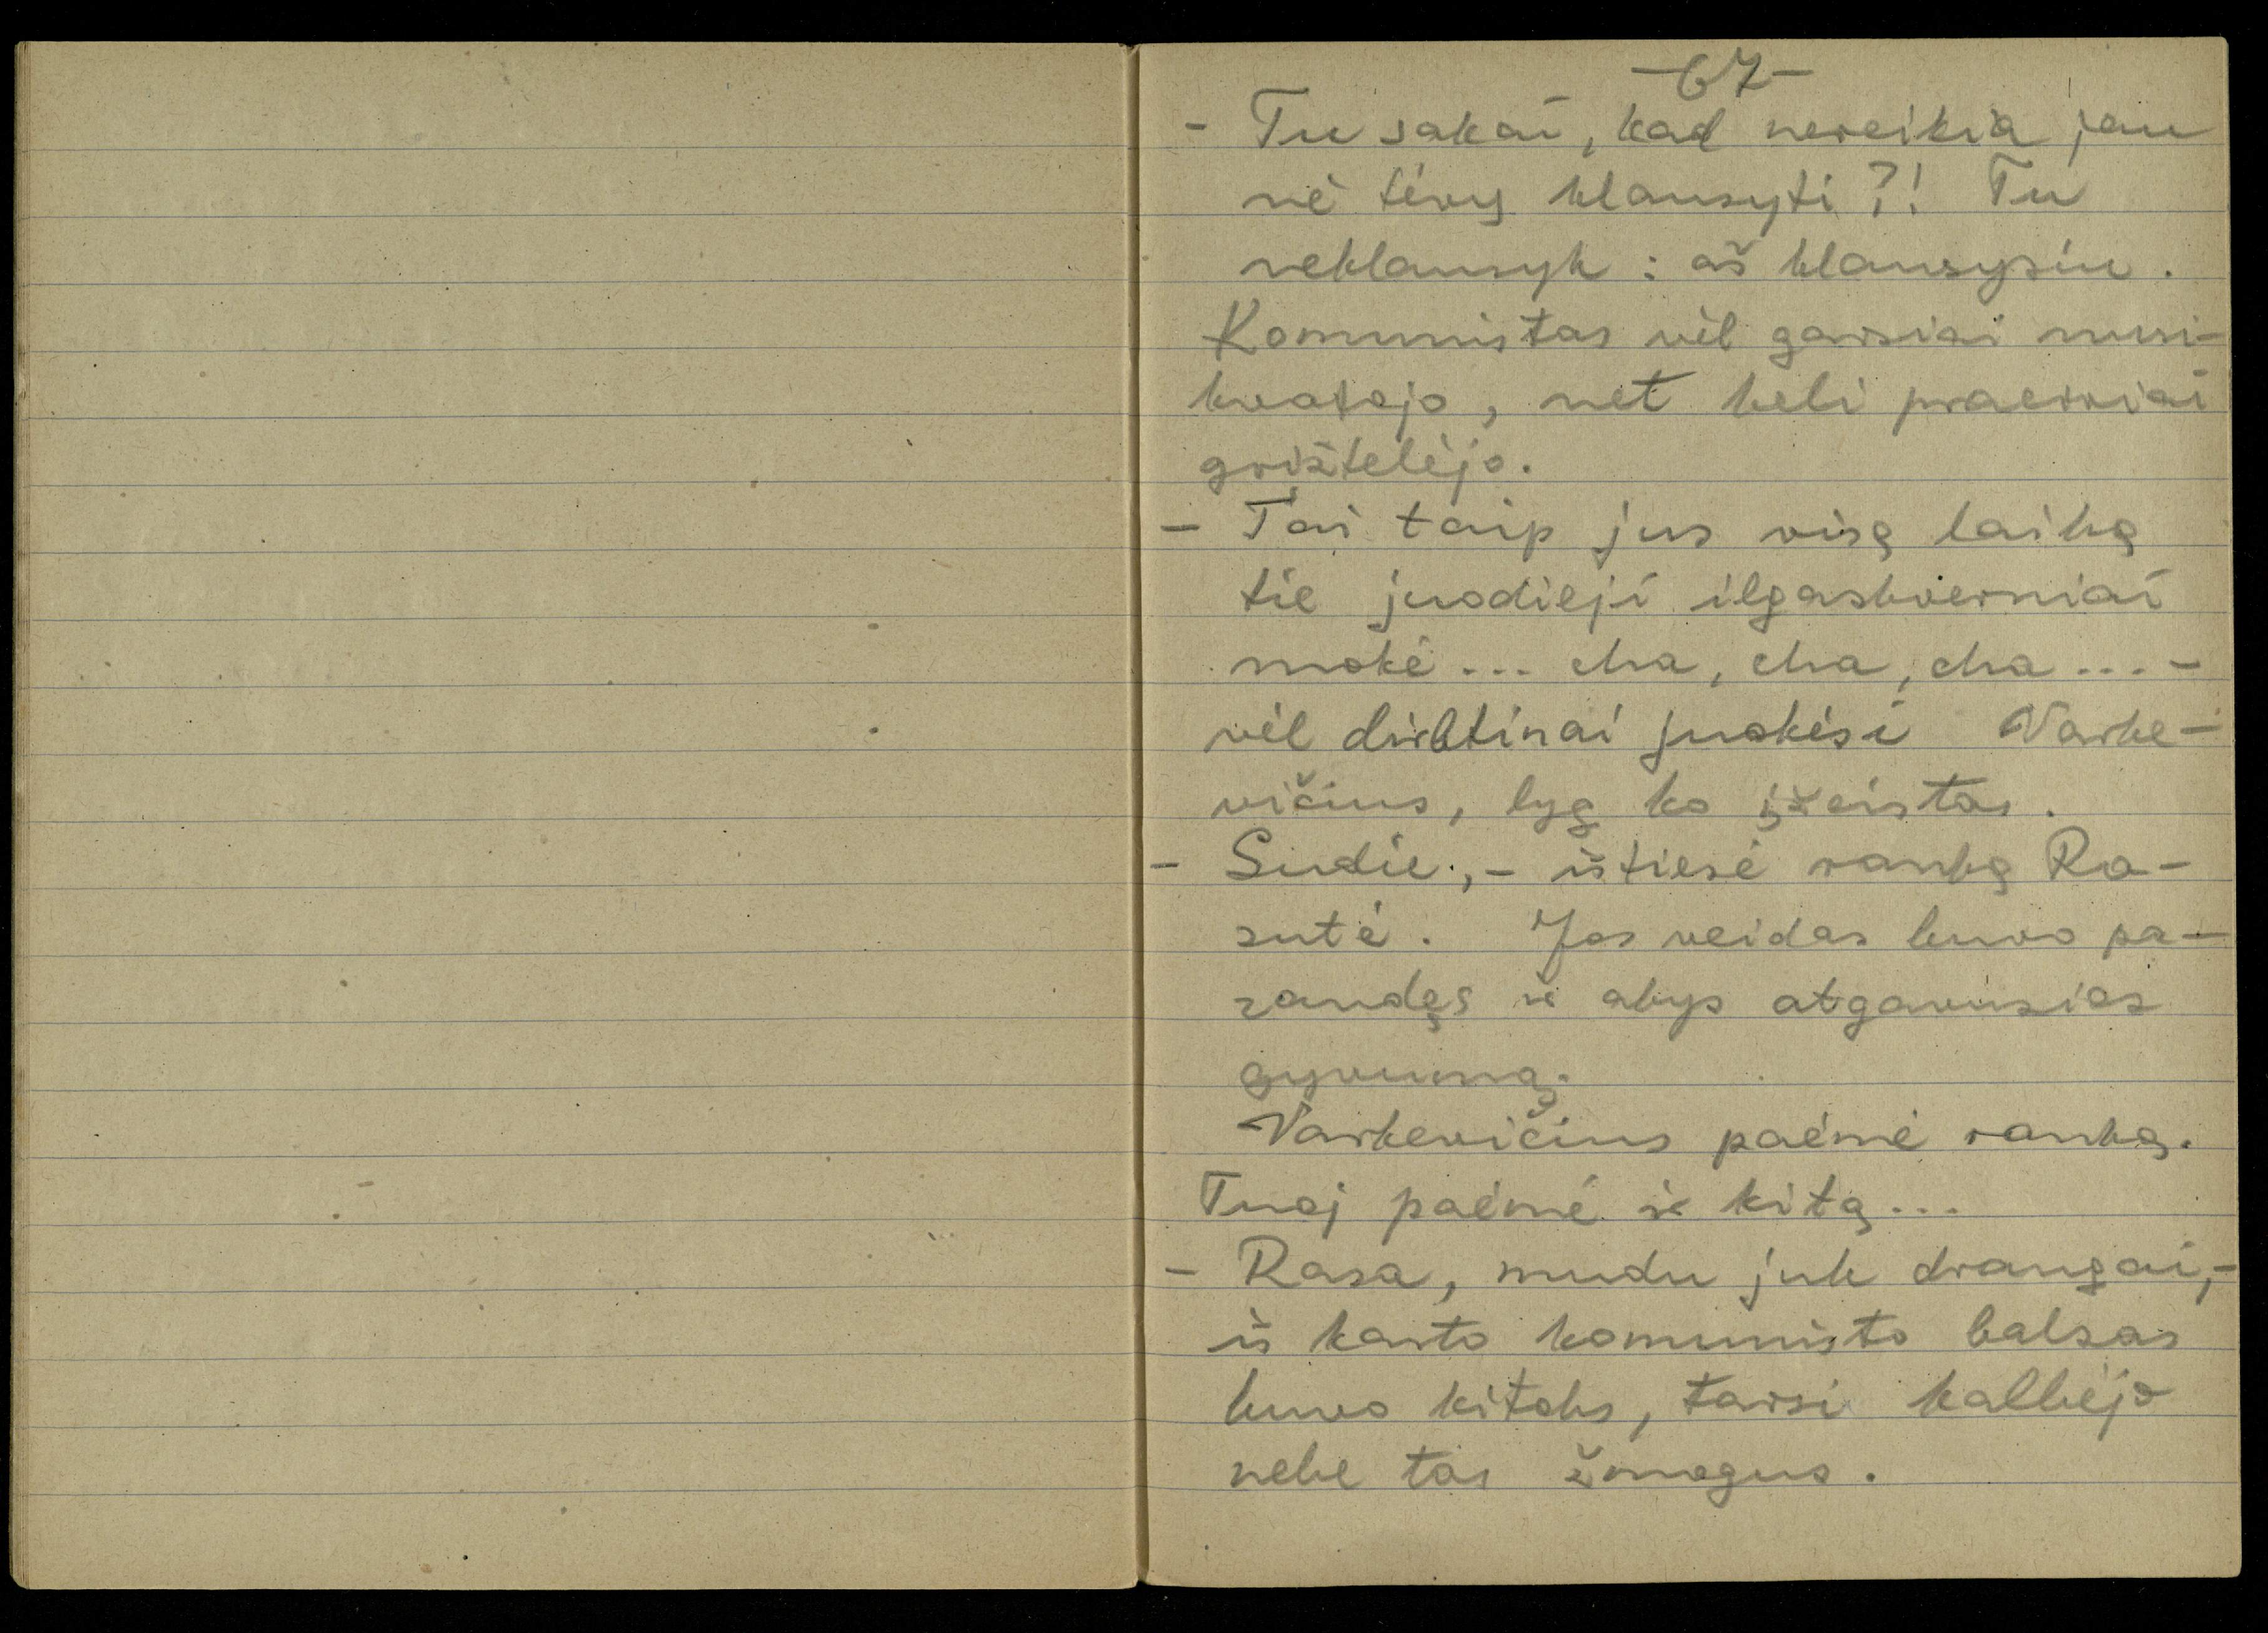 -67-
- Tu sakai, kad nereikia jau
nė tėvų klausyti?! Tu
neklausyk: aš klausysiu.
Komunistas vėl garsiai nusi-
kvatojo, net keli praeiviai
grįžtelėjo.
- Tai taip jus visą laiką
tie juodieji ilgaskverniai
mokė... cha, cha, cha... -
vėl dirbtinai juokėsi Varke-
vičius, lyg ko įžeistas.
- Sudie, - ištiesė ranką Ra-
sutė. Jos veidas buvo pa-
raudęs ir akys atgavusios
gyvumą.
Varkevičius paėmė ranką.
Tuoj paėmė ir kitą...
- Rasa, mudu juk draugai, -
iš karto komunisto balsas
buvo kitoks, tarsi kalbėjo
nebe tas žmogus.